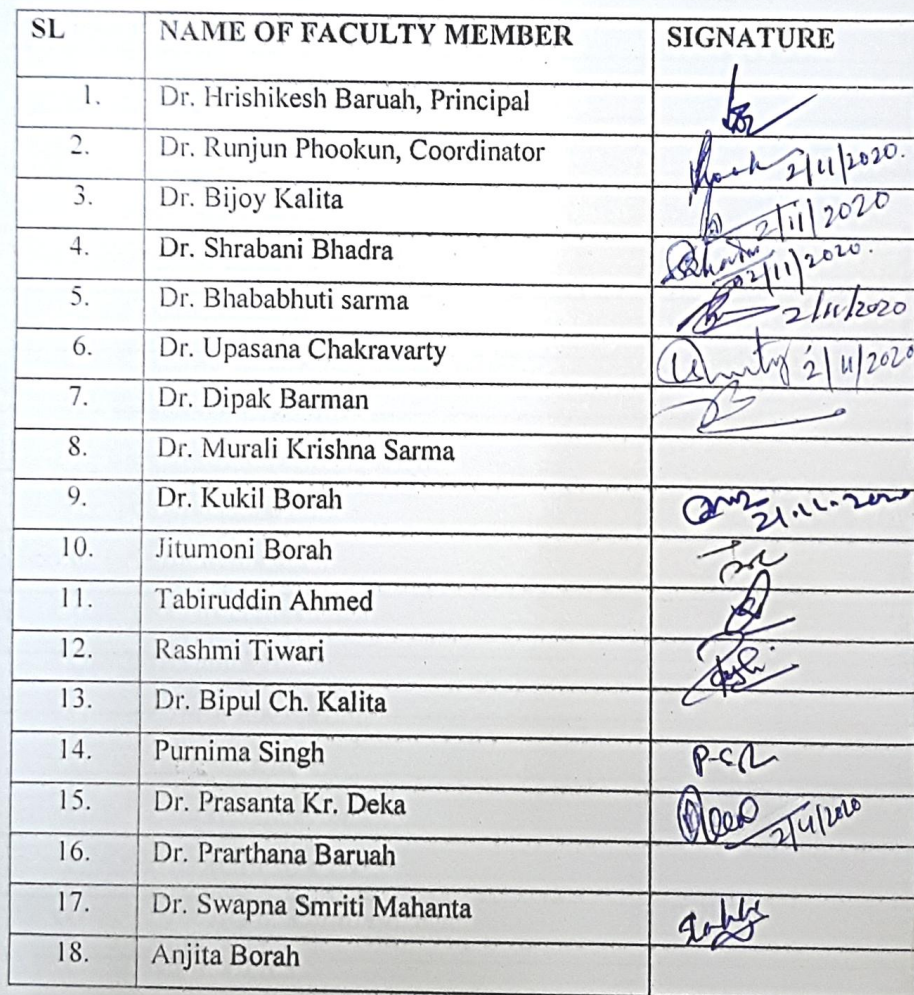 SL NAME OF FACULTY MEMBER SIGNATURE
1. Dr. Hrishikesh Baruah, Principal
2. Dr. Runjun Phookun, Coordinator 2/11/2020.
3. Dr. Bijoy Kalita 2/11/2020
4. Dr. Shrabani Bhadra 02/11/2020.
5. Dr. Bhababhuti sarma 2/11/2020
6. Dr. Upasana Chakravarty 2/11/2020
7. Dr. Dipak Barman
8. Dr. Murali Krishna Sarma
9. Dr. Kukil Borah
10. Jitumoni Borah
11. Tabiruddin Ahmed
12. Rashmi Tiwari
13. Dr. Bipul Ch. Kalita
14. Purnima Singh
15. Dr. Prasanta Kr. Deka 2/11/2020
16. Dr. Prarthana Baruah
17. Dr. Swapna Smriti Mahanta
18. Anjita Borah